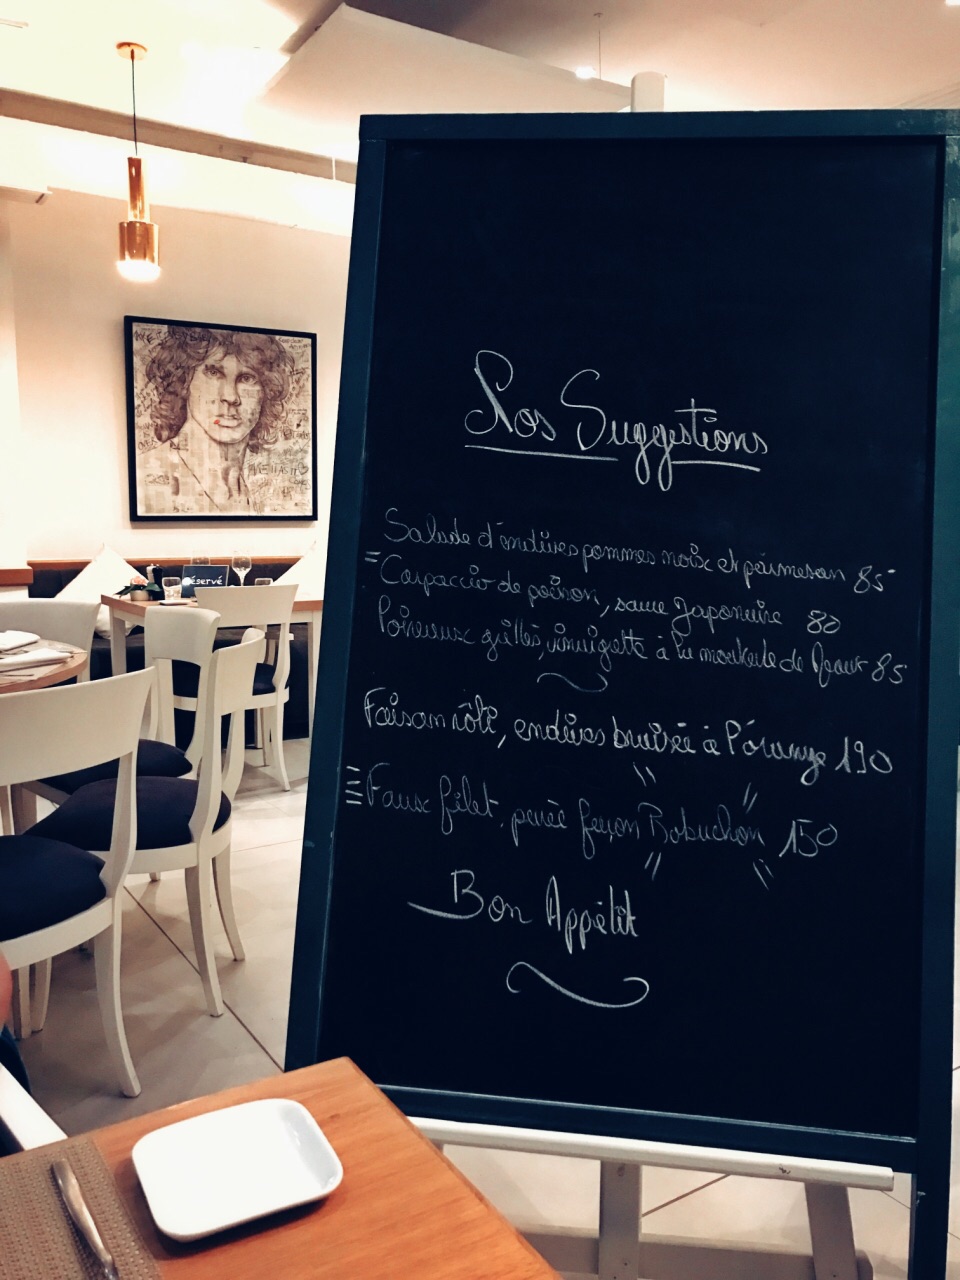 Nos Suggestions
Salade d'endives pommes noix et parmesan 85
Carpaccio de poisson, sauce Japonaise 80
Poireaux grillés, vinaigrette à la moutarde de Meaux 85
Faisan rôti, endives braisée à l'orange 190
Faux filet, purée façon Robuchon 150
Bon Appétit
Réservé